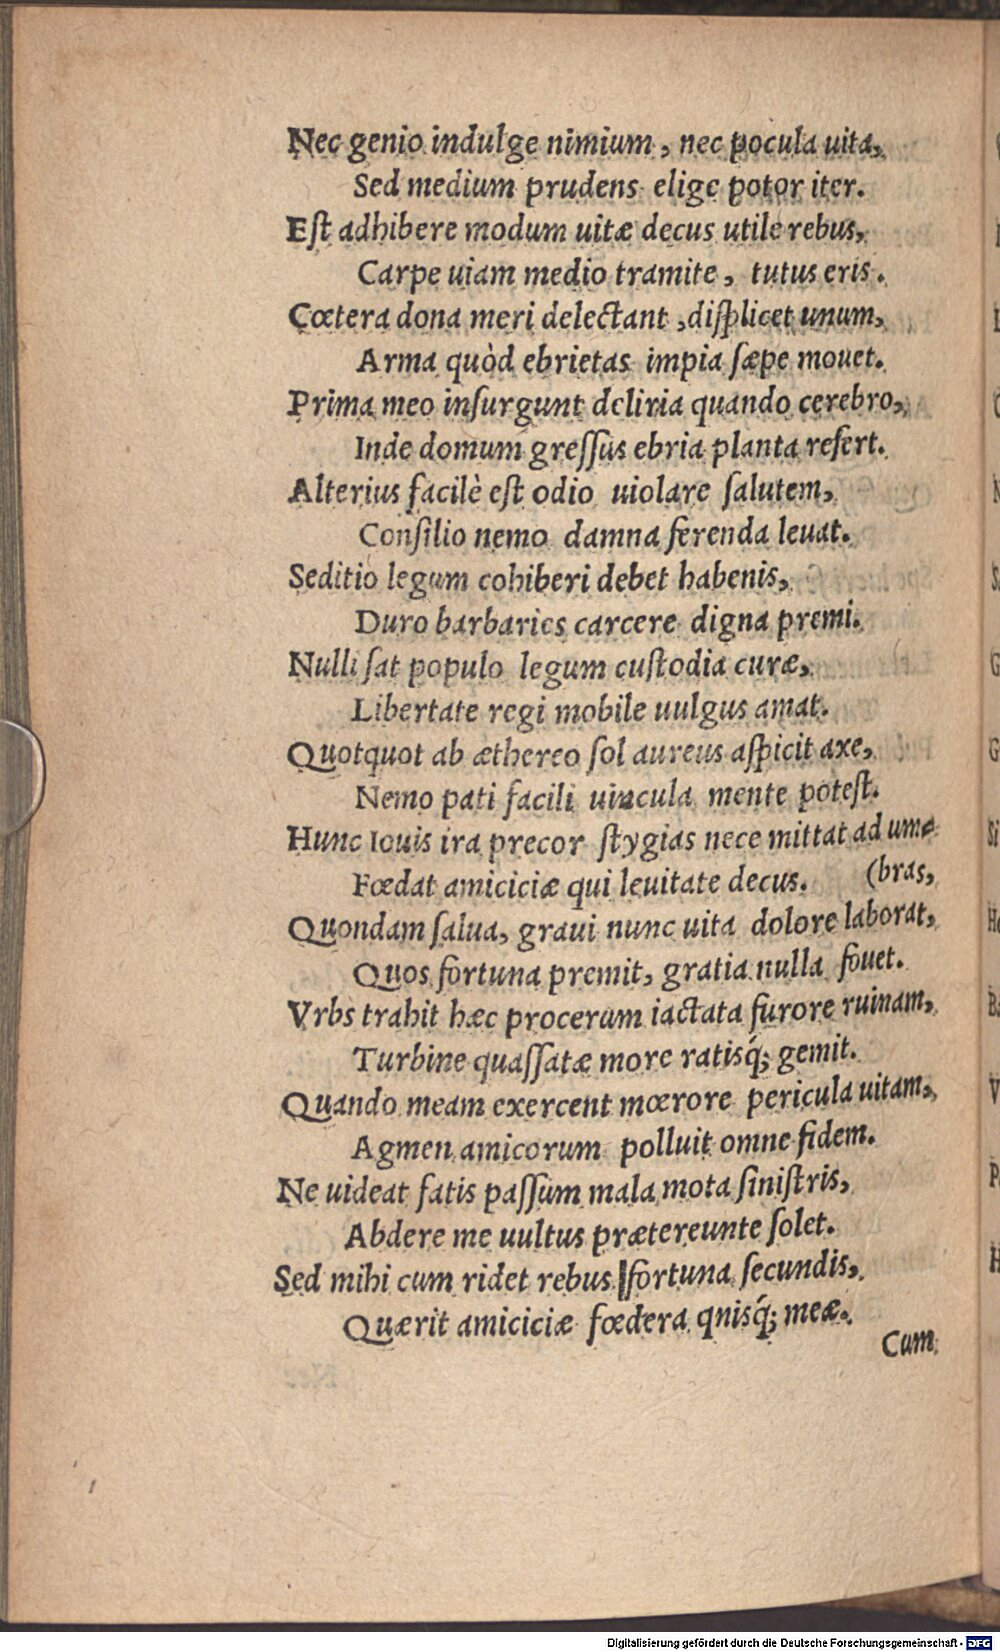 Nec genio indulge nimium, nec pocula uita,
Sed medium prudens elige potor iter.
Est adhibere modum uitæ decus utile rebus,
Carpe uiam medio tramite, tutus eris.
Cœtera dona meri delectant, displicet unum,
Arma quòd ebrietas impia sæpe mouet.
Prima meo insurgunt deliria quando cerebro,
Inde domum gressus ebria planta refert.
Alterius facilè est odio uiolare salutem,
Consilio nemo damna ferenda leuat.
Seditio legum cohiberi debet habenis,
Duro barbaries carcere digna premi.
Nulli sat populo legum custodia curæ,
Libertate regi mobile uulgus amat.
Quotquot ab æthereo sol aureus aspicit axe,
Nemo pati facili uincula mente potest.
Hunc Iouis ira precor stygias nece mittat ad umɐ
Fœdat amiciciæ qui leuitate decus. (bras,
Quondam salua, graui nunc uita dolore laborat,
Quos fortuna premit, gratia nulla fouet.
Vrbs trahit hæc procerum iactata furore ruinam,
Turbine quassatæ more ratisq́; gemit.
Quando meam exercent mœrore pericula uitam,
Agmen amicorum polluit omne fidem.
Ne uideat fatis passum mala mota sinistris,
Abdere me uultus prætereunte solet.
Sed mihi cum ridet rebus fortuna secundis,
Quærit amiciciæ fœdera qnisq́; meæ.
Cum
Digitalisierung gefördert durch die Deutsche Forschungsgemeinschaft - DFG